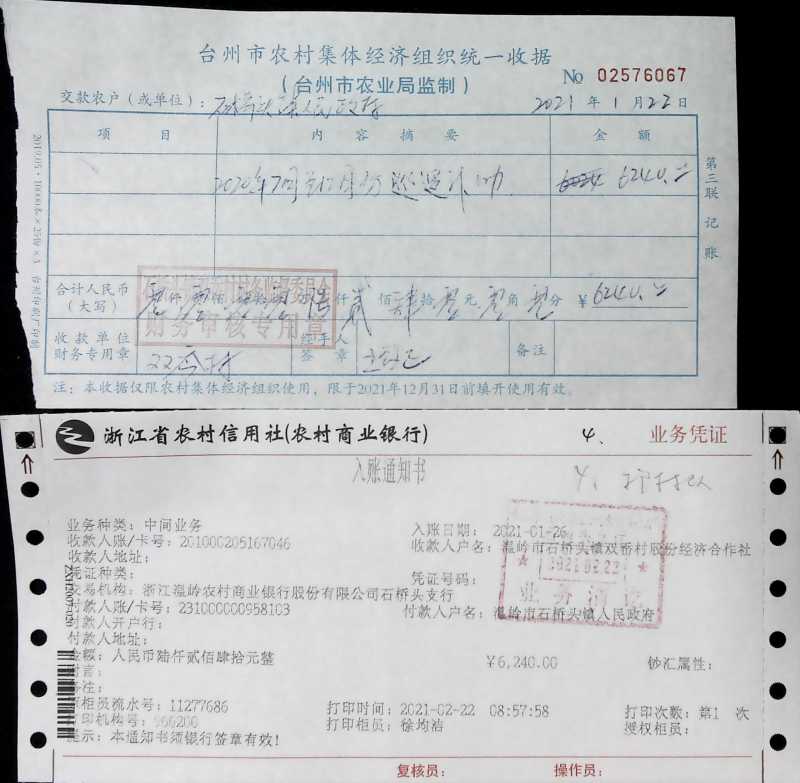 台州市农村集体经济组织统一收据
(台州市农业局监制)
№ 02576067
交款农户（或单位）：石桥头镇人民政府 2021年1月22日
项目 内容摘要 金额
2020年7月 12月份 巡逻补助 6240.
合计人民币
(大写) 零 零 陆仟贰佰肆拾零元零角零分 ¥6240.
财务审核专用章
收款单位
财务专用章
经手人
签章
备注
第三联 记账
注：本收据仅限农村集体经济组织使用，限于2021年12月31日前填开使用有效。
浙江省农村信用社(农村商业银行) 4、 业务凭证
入账通知书
4、
业务种类：中间业务 入账日期：2021-01-26
收款人账/卡号：201000205167046 收款人户名：温岭市石桥头镇双番村股份经济合作社
收款人地址：
凭证种类： 凭证号码：
交易机构：浙江温岭农村商业银行股份有限公司石桥头支行
付款人账/卡号：231000000958103 付款人户名：温岭市石桥头镇人民政府
付款人开户行：
付款人地址：
金额：人民币陆仟贰佰肆拾元整 ¥6,240.00 钞汇属性：
附言：
备注：
柜员流水号：11277686 打印时间：2021-02-22 08:57:58 打印次数：第1 次
打印机构号：966200 打印柜员：徐均洁 授权柜员：
提示：本通知书须银行签章有效！
2021.02.22
复核员： 操作员：